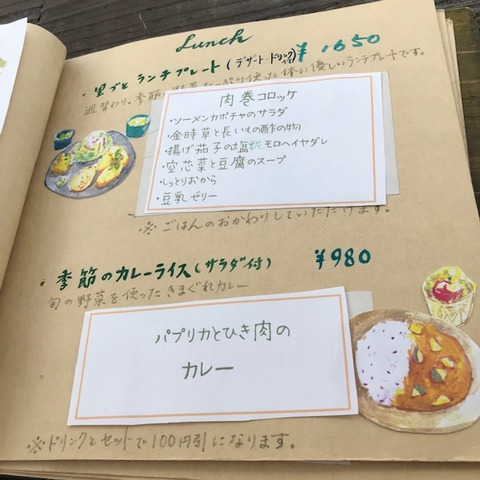 Lunch
・里ごと ランチプレート(デザート・ドリンク付) ¥1650
週替わり。季節の野菜たっぷり使った体に優しいランチプレートです。
肉巻コロッケ
・ソーメンカボチャのサラダ
・金時草と長いもの酢の物
・揚げ茄子の塩糀モロヘイヤダレ
・空芯菜と豆腐のスープ
・しっとりおから
・豆乳ゼリー
※ごはんのおかわりしていただけます。
・季節のカレーライス(サラダ付) ¥980
旬の野菜を使ったきまぐれカレー
パプリカとひき肉の
カレー
※ドリンクとセットで100円引になります。